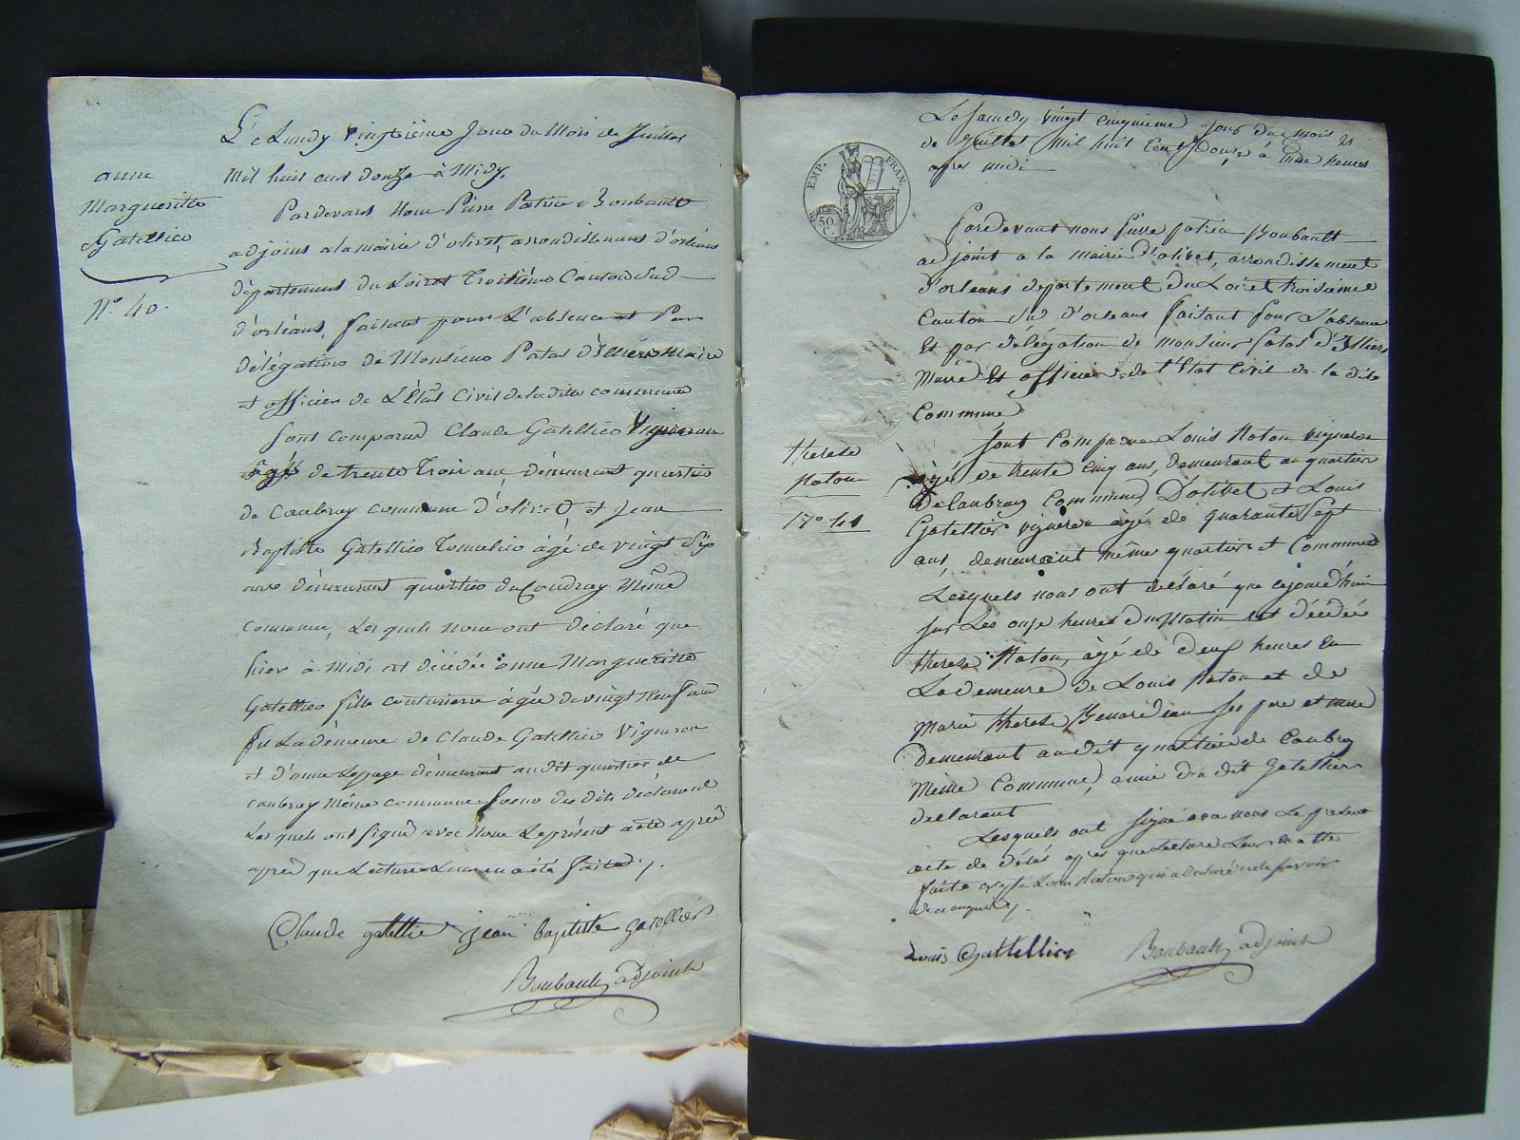 Le Lundy vingtième Jour du Mois de Juillet
Mil huit cent douze à Midy.
anne
Margueritte
Gatellier
N.° 40.
Pardevant Nous Pierre Patrice Boubault
adjoint a la mairie d'olivet, arrondissement d'orléans
département du Loiret Troisième Canton Sud
d'orléans, faisant pour L'absence et Par
délégation de Monsieur Patas d'Illiers Maire
et officier de L'État Civil de la ditte commune
sont comparus Claude Gatellier Vigneron
âgé de trente Trois ans, démeurant quartier
de Caubray commune d'olivet et Jean
Baptiste Gatellier Tonnelier âgé de vingt Six
ans démeurant quartier du Coudray Même
commune, Les quels nous ont déclaré que
hier à Midi est décédée anne Margueritte
Gatellier fille couturiere âgée de vingt Neuf ans
En La démeure de Claude Gatellier Vigneron
et d'anne Lepage démeurant audit quartier de
caubray Même commune Soeur des dits déclarant
Les quels ont signé avec Nous Le présent acte après
après que Lecture Leur en a été faite.
Claude gatellier jean baptiste gatellier
Boubault adjoint
EMP. FRAN.
50 C.
Le samedy vingt cinquieme jour du mois de
de Juillet mil huit cent douze à deux heures
apres midi
Pardevant nous Pierre patrice Boubault
adjoint a la mairie d'olivet, arrondissement
d'orleans departement du Loiret troisieme
Canton sud d'orleans faisant pour L'absence
Et par délégation de monsieur Patas d'Illiers
Maire Et officier de l'Etat Civil de la dite
Commune
therese
Naton
N° 41
Sont Comparus Louis Naton vigneron
agé de trente cinq ans, demeurant au quartier
De Caubray Commune D'olivet et Louis
Gatellier vigneron agé de quarante sept
ans, demeurant même quartier et Commune
Lesquels nous ont declaré que cejourd'hui
sur Les onze heures du Matin est décédée
therese Naton, agé de deux heures En
La demeure de Louis Naton et de
Marie therese ses pere et mere
Demeurant audit quartier de Caubray
Meme Commune, amie du dit Gatellier
declarant
Lesquels ont signe avec nous Le present
acte de décés apres que Lecture Leur en a été
faite excepté Louis Naton qui a declaré ne le savoir
de ce enquis.
Louis Gattellier Boubault adjoint